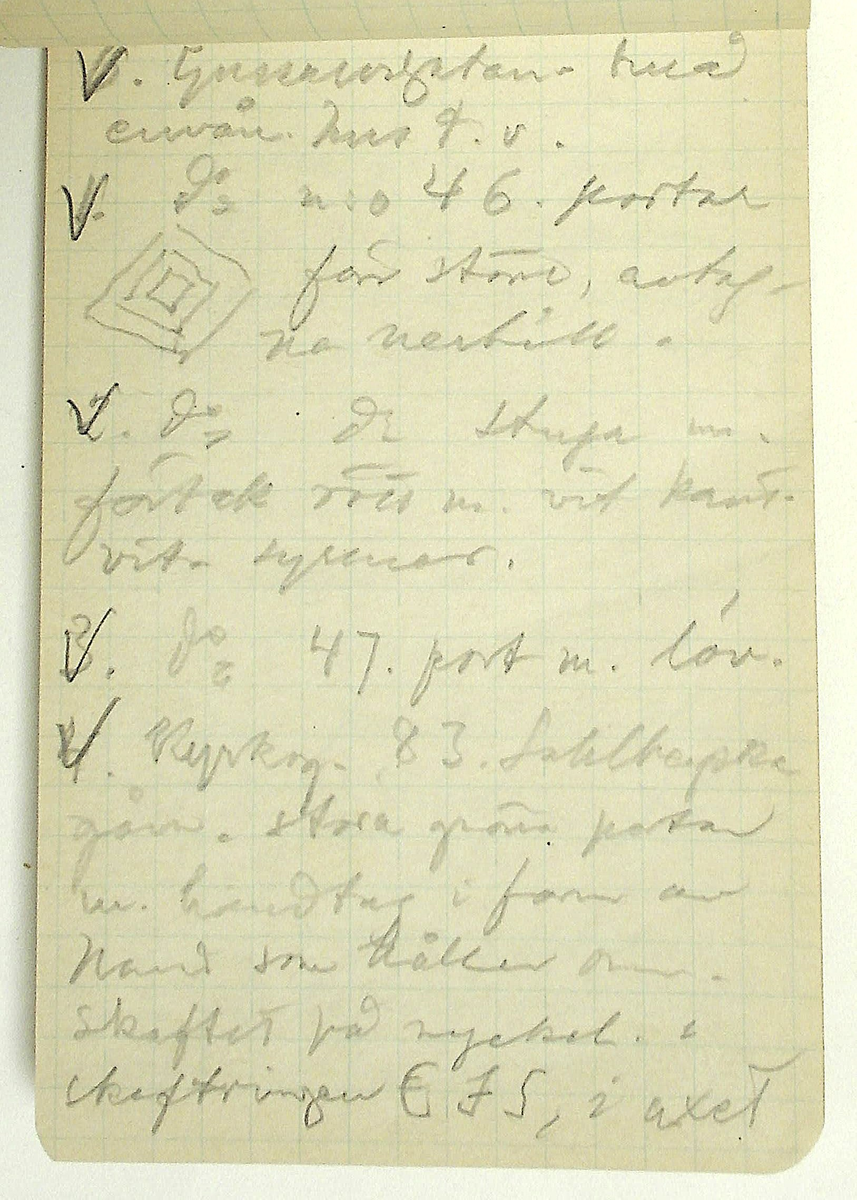 små
envån. hus t. v.
1. d:o n:o 46. portar
förr större, avtag-
na nertill.
2. d:o d:o stuga m.
förtak rött m. vit kant.
vit.
3. d:o 47. port m. löv.
4. Kyrkog. 83.
gård. stora gröna portar
m. handtag i form av
hand som håller om
skaftet på nyckel. i
skaftringen E J S, i axet